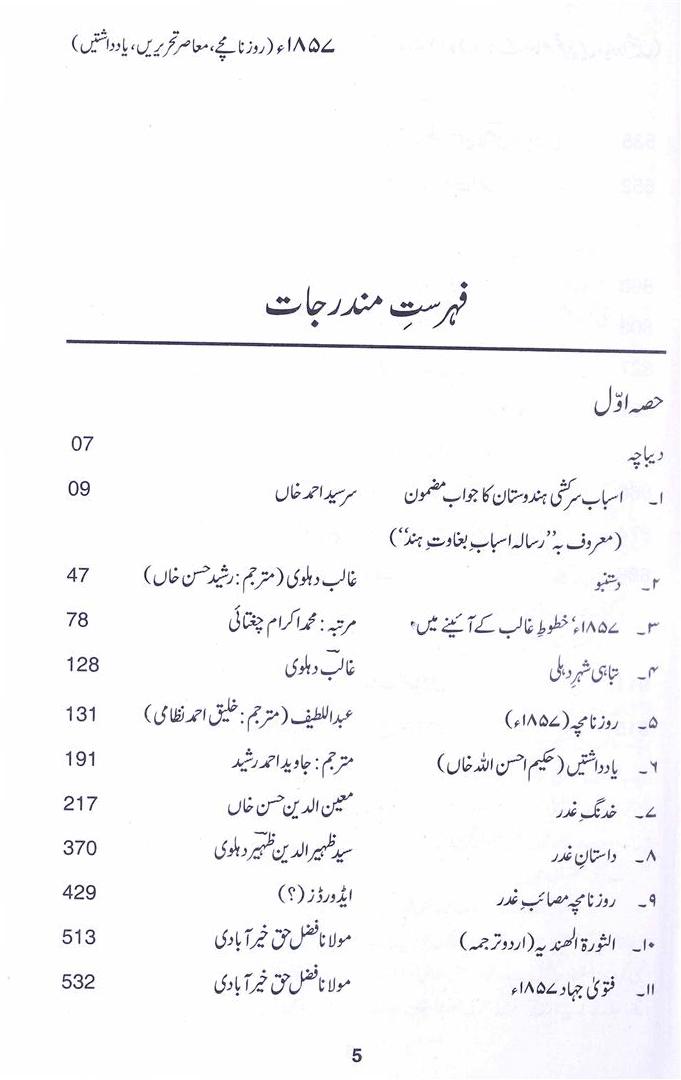 ۱۸۵۷ء (روزنامچے، معاصر تحریریں، یادداشتیں)
فہرستِ مندرجات
حصہ اوّل
دیباچہ 07
۱۔ اسباب سرکشی ہندوستان کا جواب مضمون سرسید احمد خاں 09
(معروف بہ ”رسالہ اسبابِ بغاوتِ ہند“)
۲۔ دستنبو غالب دہلوی (مترجم: رشید حسن خاں) 47
۳۔ ۱۸۵۷ء، خطوطِ غالب کے آئینے میں، مرتبہ: محمد اکرام چغتائی 78
۴۔ تباہی شہرِ دہلی غالبؔ دہلوی 128
۵۔ روزنامچہ (۱۸۵۷ء) عبداللطیف (مترجم: خلیق احمد نظامی) 131
۶۔ یادداشتیں (حکیم احسن اللہ خاں) مترجم: جاوید احمد رشید 191
۷۔ خدنگِ غدر معین الدین حسن خاں 217
۸۔ داستانِ غدر سید ظہیر الدین ظہیرؔ دہلوی 370
۹۔ روزنامچہ مصائبِ غدر ایڈورڈز (؟) 429
۱۰۔ الثورۃ الھندیہ (اردو ترجمہ) مولانا فضل حق خیر آبادی 513
۱۱۔ فتویٰ جہاد ۱۸۵۷ء مولانا فضل حق خیر آبادی 532
5